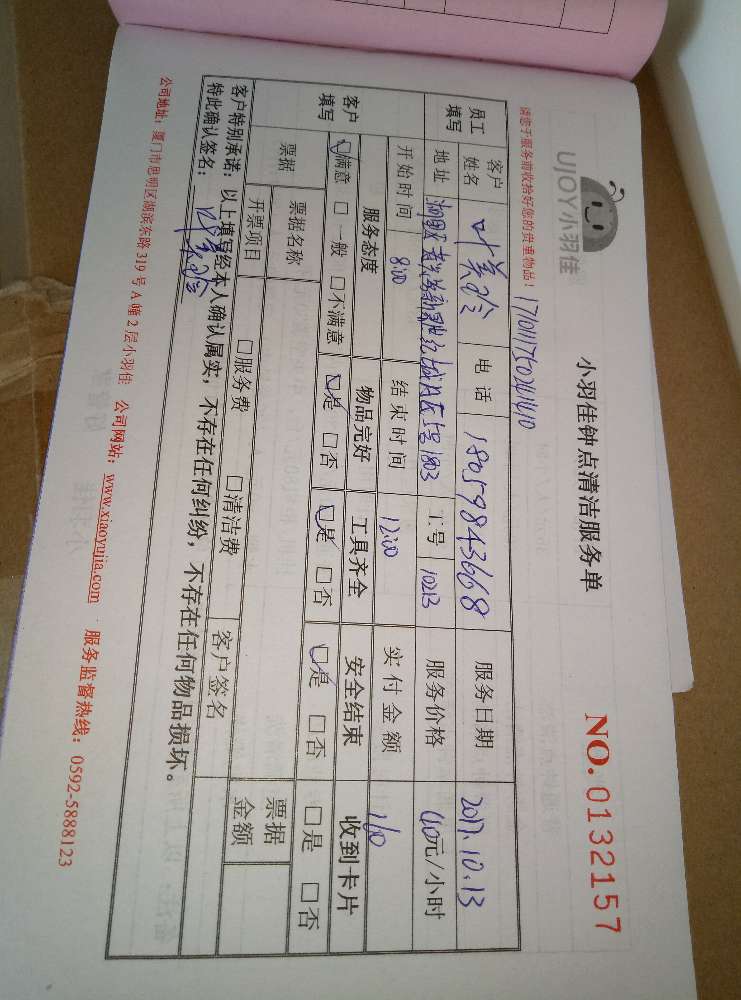 UJOY小羽佳
小羽佳钟点清洁服务单
NO. 0132157
请您于服务前收拾好您的贵重物品!
员工填写 客户姓名 叶美玲 电话 18059843668 服务日期 2017.10.13
地址 A区5号1803 工号 10213 服务价格 40元/小时
开始时间 8:00 结束时间 12:00 实付金额 160
客户填写 服务态度 物品完好 工具齐全 安全结束 收到卡片
☑满意 □一般 □不满意 ☑是 □否 ☑是 □否 ☑是 □否 □是 □否
票据 票据名称 客户签名 票据金额
开票项目 □服务费 □清洁费
客户特别承诺:以上填写经本人确认属实,不存在任何纠纷,不存在任何物品损坏。
特此确认签名: 叶美玲
公司地址:厦门市思明区湖滨东路319号A幢2层小羽佳 公司网站:www.xiaoyujia.com 服务监督热线:0592-5888123